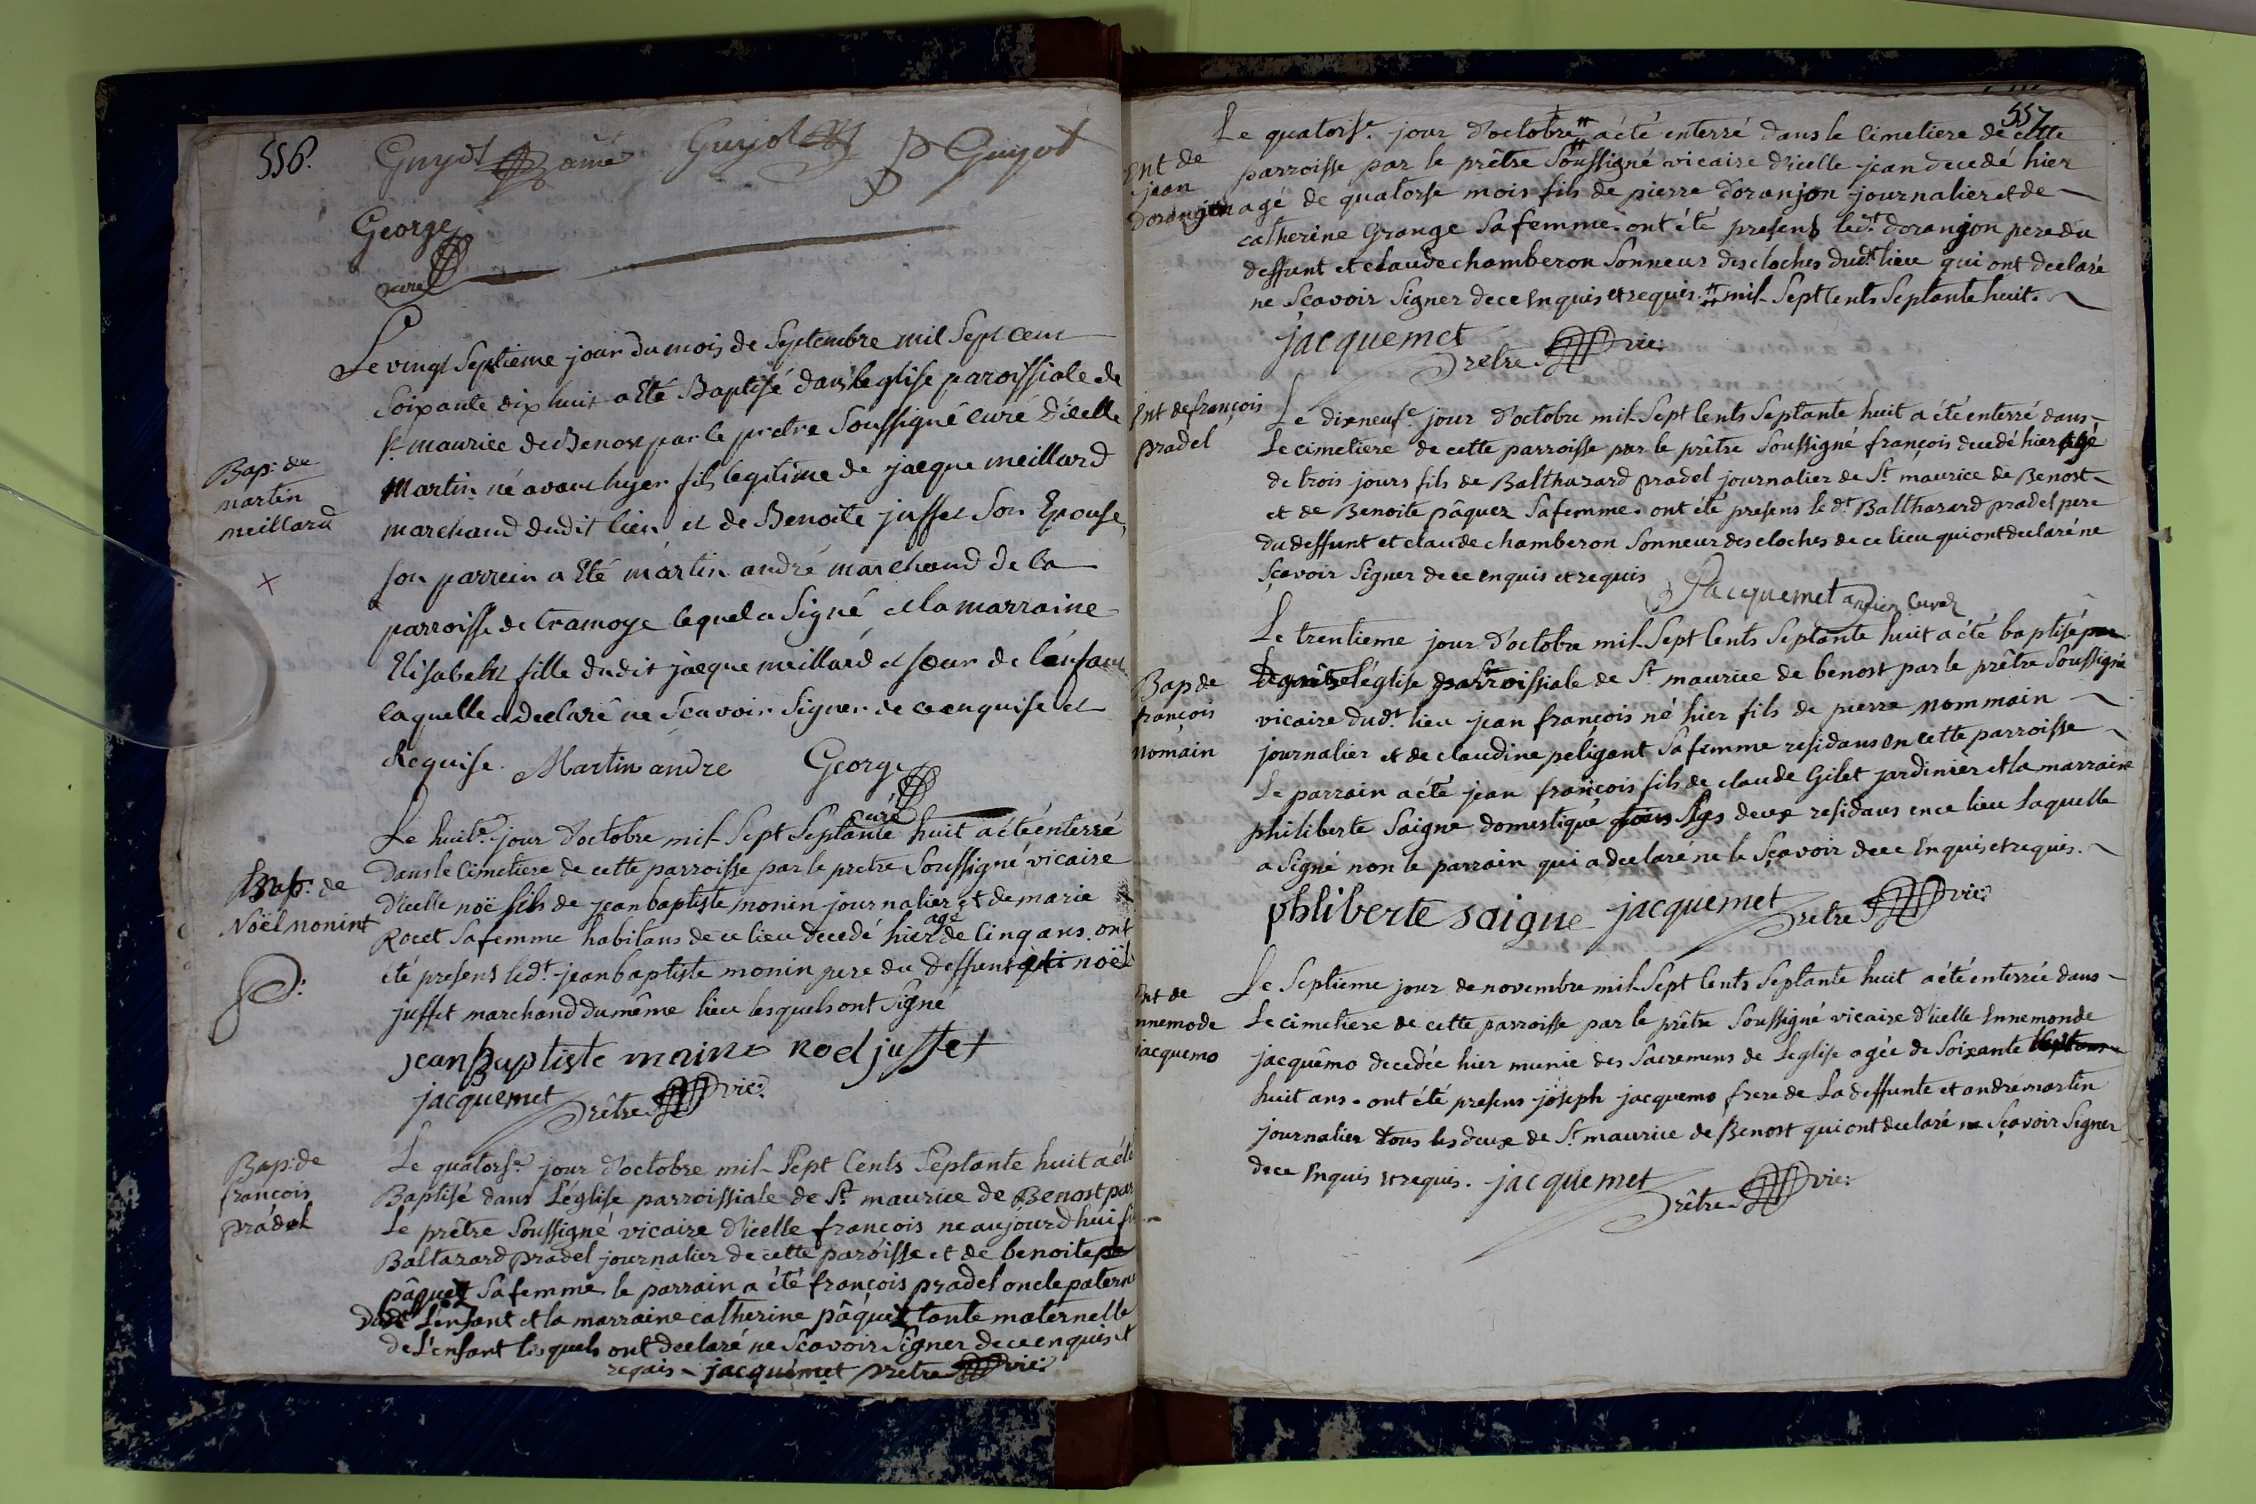 556.
Guyot ainé Guyot P Guyot
George
curé
Bap: de
martin
meillard
Le vingt Septieme jour du mois de Septembre mil Sept cent
Soixante dix huit a Eté Baptisé dans leglise paroissiale de
St maurice de Benost par le pretre Soussigné curé d'icelle
Martin né avant hyer fils legitime de jacque meillard
marchand dudit lieu et de Benoite juffet Son Epouse,
son parrein a Eté martin andré marchand de la
parroisse de tramoye lequel a Signé et la marraine
Elisabeht fille dudit jacque meillard et soeur de l'enfant
laquelle a declaré ne Scavoir Signer de ce enquise et
Requise. Martin andre George
curé
Bap: de
Noël monint
Le huite. jour d'octobre mil Sept Septante huit a été énterré
dans le Cimetiere de cette parroisse par le pretre Soussigné vicaire
d'icelle noë fils de jean baptiste monin journalier et de marie
Rocet Sa femme habitans de ce lieu decedé hier agé de Cinq ans. ont
été presens led.t jean baptiste monin pere du deffunt et noël
juffet marchand du même lieu lesquels ont Signé
jean baptiste moine noel juffet
jacquemet Prêtre vic:
Bap: de
françois
pradel
Le quatorse. jour d'octobre mil Sept Cents Septante huit a été
Baptisé dans L'église parroissiale de St. maurice de Benost par
Le prêtre Soussigné vicaire d'icelle françois ne aujourd'hui fils
Baltazard pradel journalier de cette paroisse et de benoite
pâquet Sa femme le parrain a été françois pradel oncle patern
dudt L'enfant et la marraine catherine pâquet tante maternelle
de L'enfant lesquels ont declaré ne Scavoir Signer de ce enquis et
requis jacquemet pretre vic:
557
Ent de
jean
doranjon
Le quatorse. jour d'octobre # a été enterré dans le Cimetiere de cette
parroisse par le prêtre Soussigné vicaire d'icelle jean decedé hier
agé de quatorse mois fils de pierre doranjon journalier et de
catherine Grange Sa femme. ont été presens led.t doranjon pere du
deffunt et claude chamberon Sonneur des cloches dud.t lieu qui ont declaré
ne Sçavoir Signer de ce Enquis et requis. # mil Sept Cents Septante huit.
jacquemet Pretre vic:
Ent de françois
pradel
Le dixneufe. jour d'octobre mil Sept Cents Septante huit a été enterré dans
Le cimetiere de cette parroisse par le prêtre Soussigné françois decedé hier agé
de trois jours fils de Balthazard pradel journalier de St. maurice de Benost
et de Benoite pâquez Sa femme. ont été presens le d.t Balthazard pradel pere
du deffunt et claude chamberon Sonneur des cloches de ce lieu qui ont declaré ne
Sçavoir Signer de ce enquis et requis Jacquemet ancien Curé
Bap de
françois
nomain
Le trentieme jour d'octobre mil Sept Cents Septante huit a été baptisé
l'église parroissiale de St. maurice de benost par le prêtre Soussigné
vicaire dud.t lieu jean françois né hier fils de pierre nommain
journalier et de claudine peligant Sa femme residans en cette parroisse
Le parrain a été jean françois fils de claude Gilet jardinier et la marraine
philiberte Saigne domestique deux residans en ce lieu Laquelle
a Signé non le parrain qui a declaré ne le Sçavoir de ce Enquis et requis.
phliberte saigne jacquemet Pretre vic:
Ent de
nnemode
jacquemo
Le Septieme jour de novembre mil Sept Cents Septante huit a été enterrée dans
Le cimetiere de cette parroisse par le prêtre Soussigné vicaire d'icelle Ennemonde
jacquêmo decedée hier munie des Sacremens de Leglise agée de Soixante
huit ans. ont été presens joseph jacquemo frere de La deffunte et andré martin
journalier tous les deux de St. maurice de Benost qui ont declaré ne Sçavoir Signer
de ce Enquis et requis. jacquemet Prêtre vic: